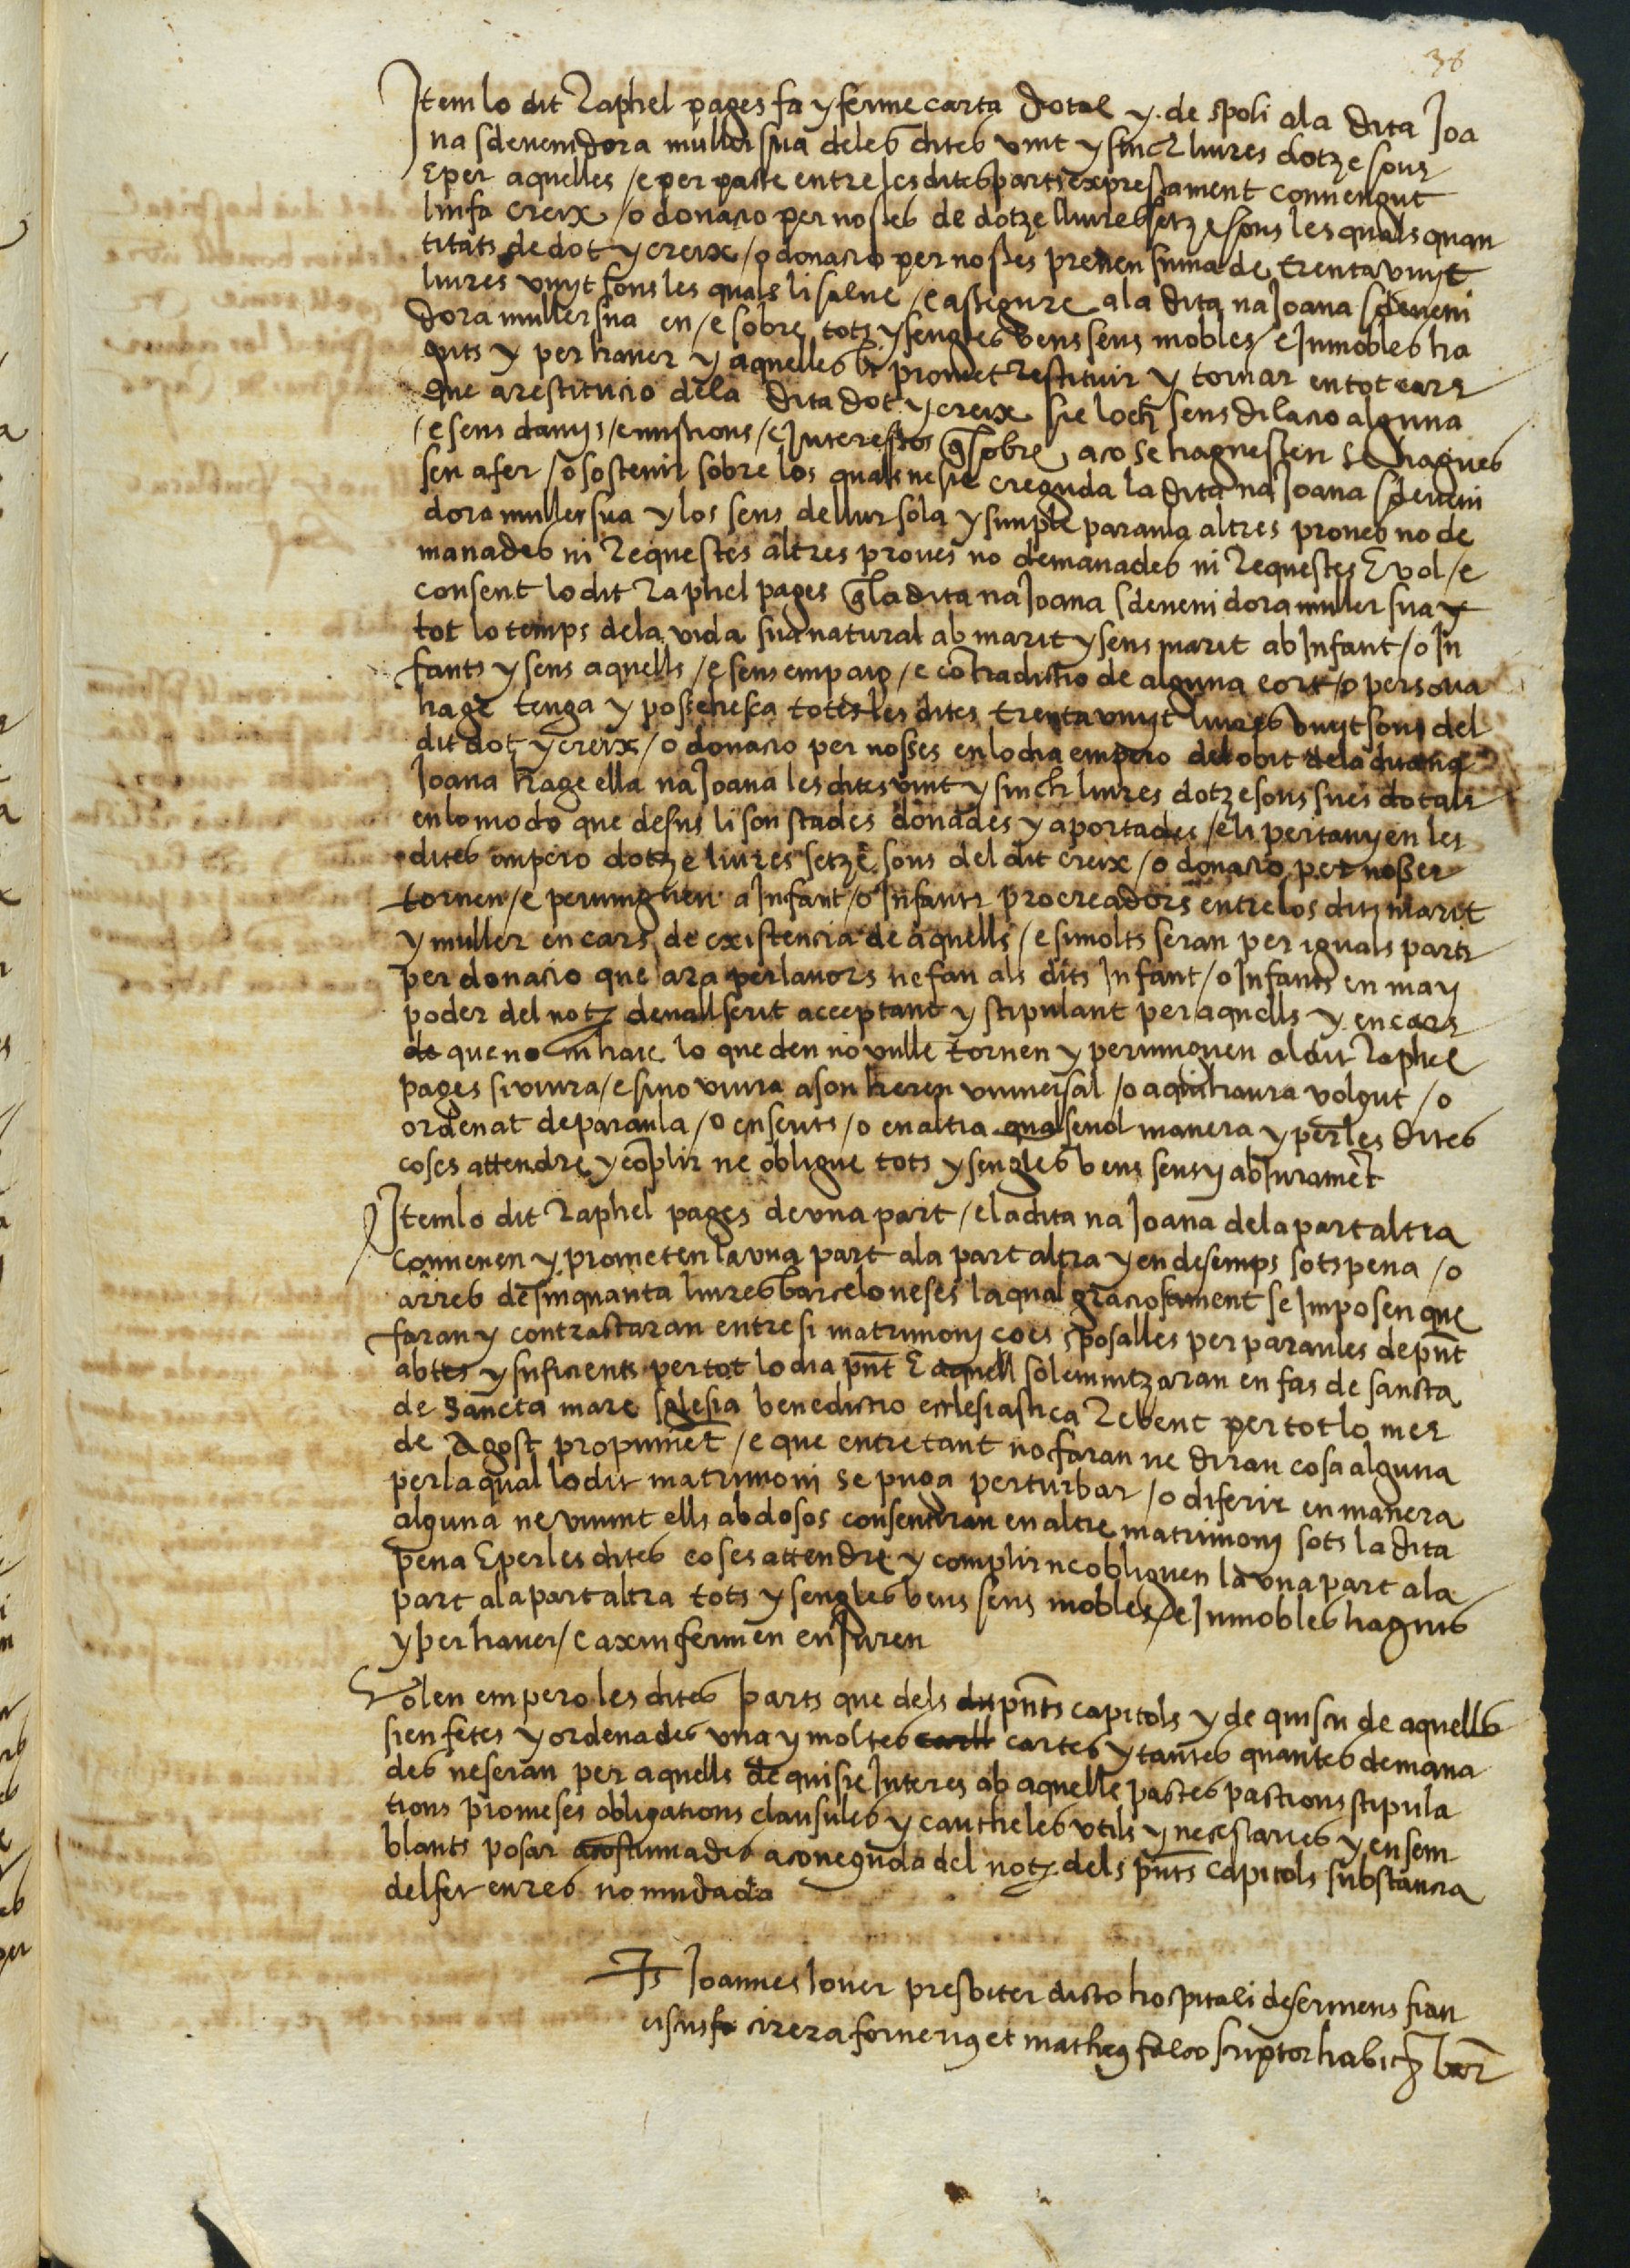 36
Item lo dit Raphel pages fa y ferme carta dotal y de spoli a la dita Joa
na sdevenidora muller sua de les dites vint y sinch liures dotze sous
E per aquelles / e per pacte entre les dites parts expressament convengut
li n fa creix / o donacio per noses de dotze lliures setze sous les quals quan
titats de dot y creix / o donacio per nosses prenen suma de trenta vuyt
liures vuyt sous les quals li salve / e assegure a la dita na Joana sdeveni
dora muller sua en / e sobre tots y sengles bens seus mobles / e Inmobles ha
guts y per haver y aquelles li promet Restituir y tornar en tot cars
que a restitucio de la dita dot y creix sie loch sens dilacio alguna
/ e sens danys / e missions / e Interessos q̄ sobre aco se haguessen se hagues
sen a fer / o sostenir sobre los quals ne sie creguda la dita na Joana sdeveni
dora muller sua y los seus de llur sola y simple paraula altres proves no de
manades ni Requestes altres proves no demanades ni Requestes E vol / e
consent lo dit Raphel pages q̄ la dita na Joana sdevenidora muller sua y
tot lo temps de la vida sua natural ab marit y sens marit ab Infant / o In
fants y sens aquells / e sens empaig / e cõtradictio de alguna cort / o persona
hage tenga y possehesca totes les dites trenta vuyt liures vuyt sous del
dit dot y creix / o donacio per nosses en lo dia empero del obit de la dita na
Joana hage ella na Joana les dites vint y sinch liures dotze sous sues dotals
en lo modo que desus li son stades donades y aportades / e li pertanyen les
dites empero dotze liures setze sous del dit creix / o donacio per nosses
tornen / e pervinguen a Infant / o Infants procreadors entre los dits marit
y muller en cars de existencia de aquells / e si molts seran per iguals parts
per donacio que ara per lavors ne fan als dits Infant / o Infants en may
poder del not̃ devall scrit acceptant y stipulant per aquells y en cars
de que no ni haie lo que deu no vulle tornen y pervinguen al dit Raphel
pages si viura / e si no viura a son hereu universal / o a qui haura volgut / o
ordenat de paraula / o en scrits / o en altra qualsevol manera y per les dites
coses attendre y cõplir ne obligue tots y sengles bens seus y ab Juramẽt
Item lo dit Raphel pages de una part / e la dita na Joana de la part altra
convenen y prometen la una part a la part altra y en desemps sots pena / o
arres de sinquanta liures barceloneses la qual graciosament se Imposen que
faran y contractaran entre si matrimoni ço es sposalles per paraules de pñt
abtes y suficients per tot lo dia pñt E aquell solemnitzaran en fas de sancta
de sancta mare sglesia benedictio ecclesiastica Rebent per tot lo mes
de Agost propvinẽt / e que entretant no faran ne diran cosa alguna
per la qual lo dit matrimoni se puga perturbar / o diferir en manera
alguna ne vivint ells abdosos consentiran en altre matrimoni sots la dita
pena E per les dites coses attendre y complir ne obliguen la una part a la
part a la part altra tots y sengles bens seus mobles / e Inmobles haguts
y per haver / e axi u fermen e u Juren
Volen empero les dites parts que dels dit pñts capitols y de quiscu de aquells
sien fetes y ordenades una y moltes carll cartes y tantes quantes demana
des ne seran per aquells de qui sie Interes ab aquelle pactes pactions stipula
tions promeses obligations clausules y cautheles utils y necessaries y en sem
blants posar acostumades a coneguda del not̃ dels pñts capitols substancia
del fet en res no mudada
Ts Joannes Jover presbiter dicto hospitali deserviens fran
ciscus fo cirera forneriꝰ et matheꝰ falco scriptor habit̃ bar̃